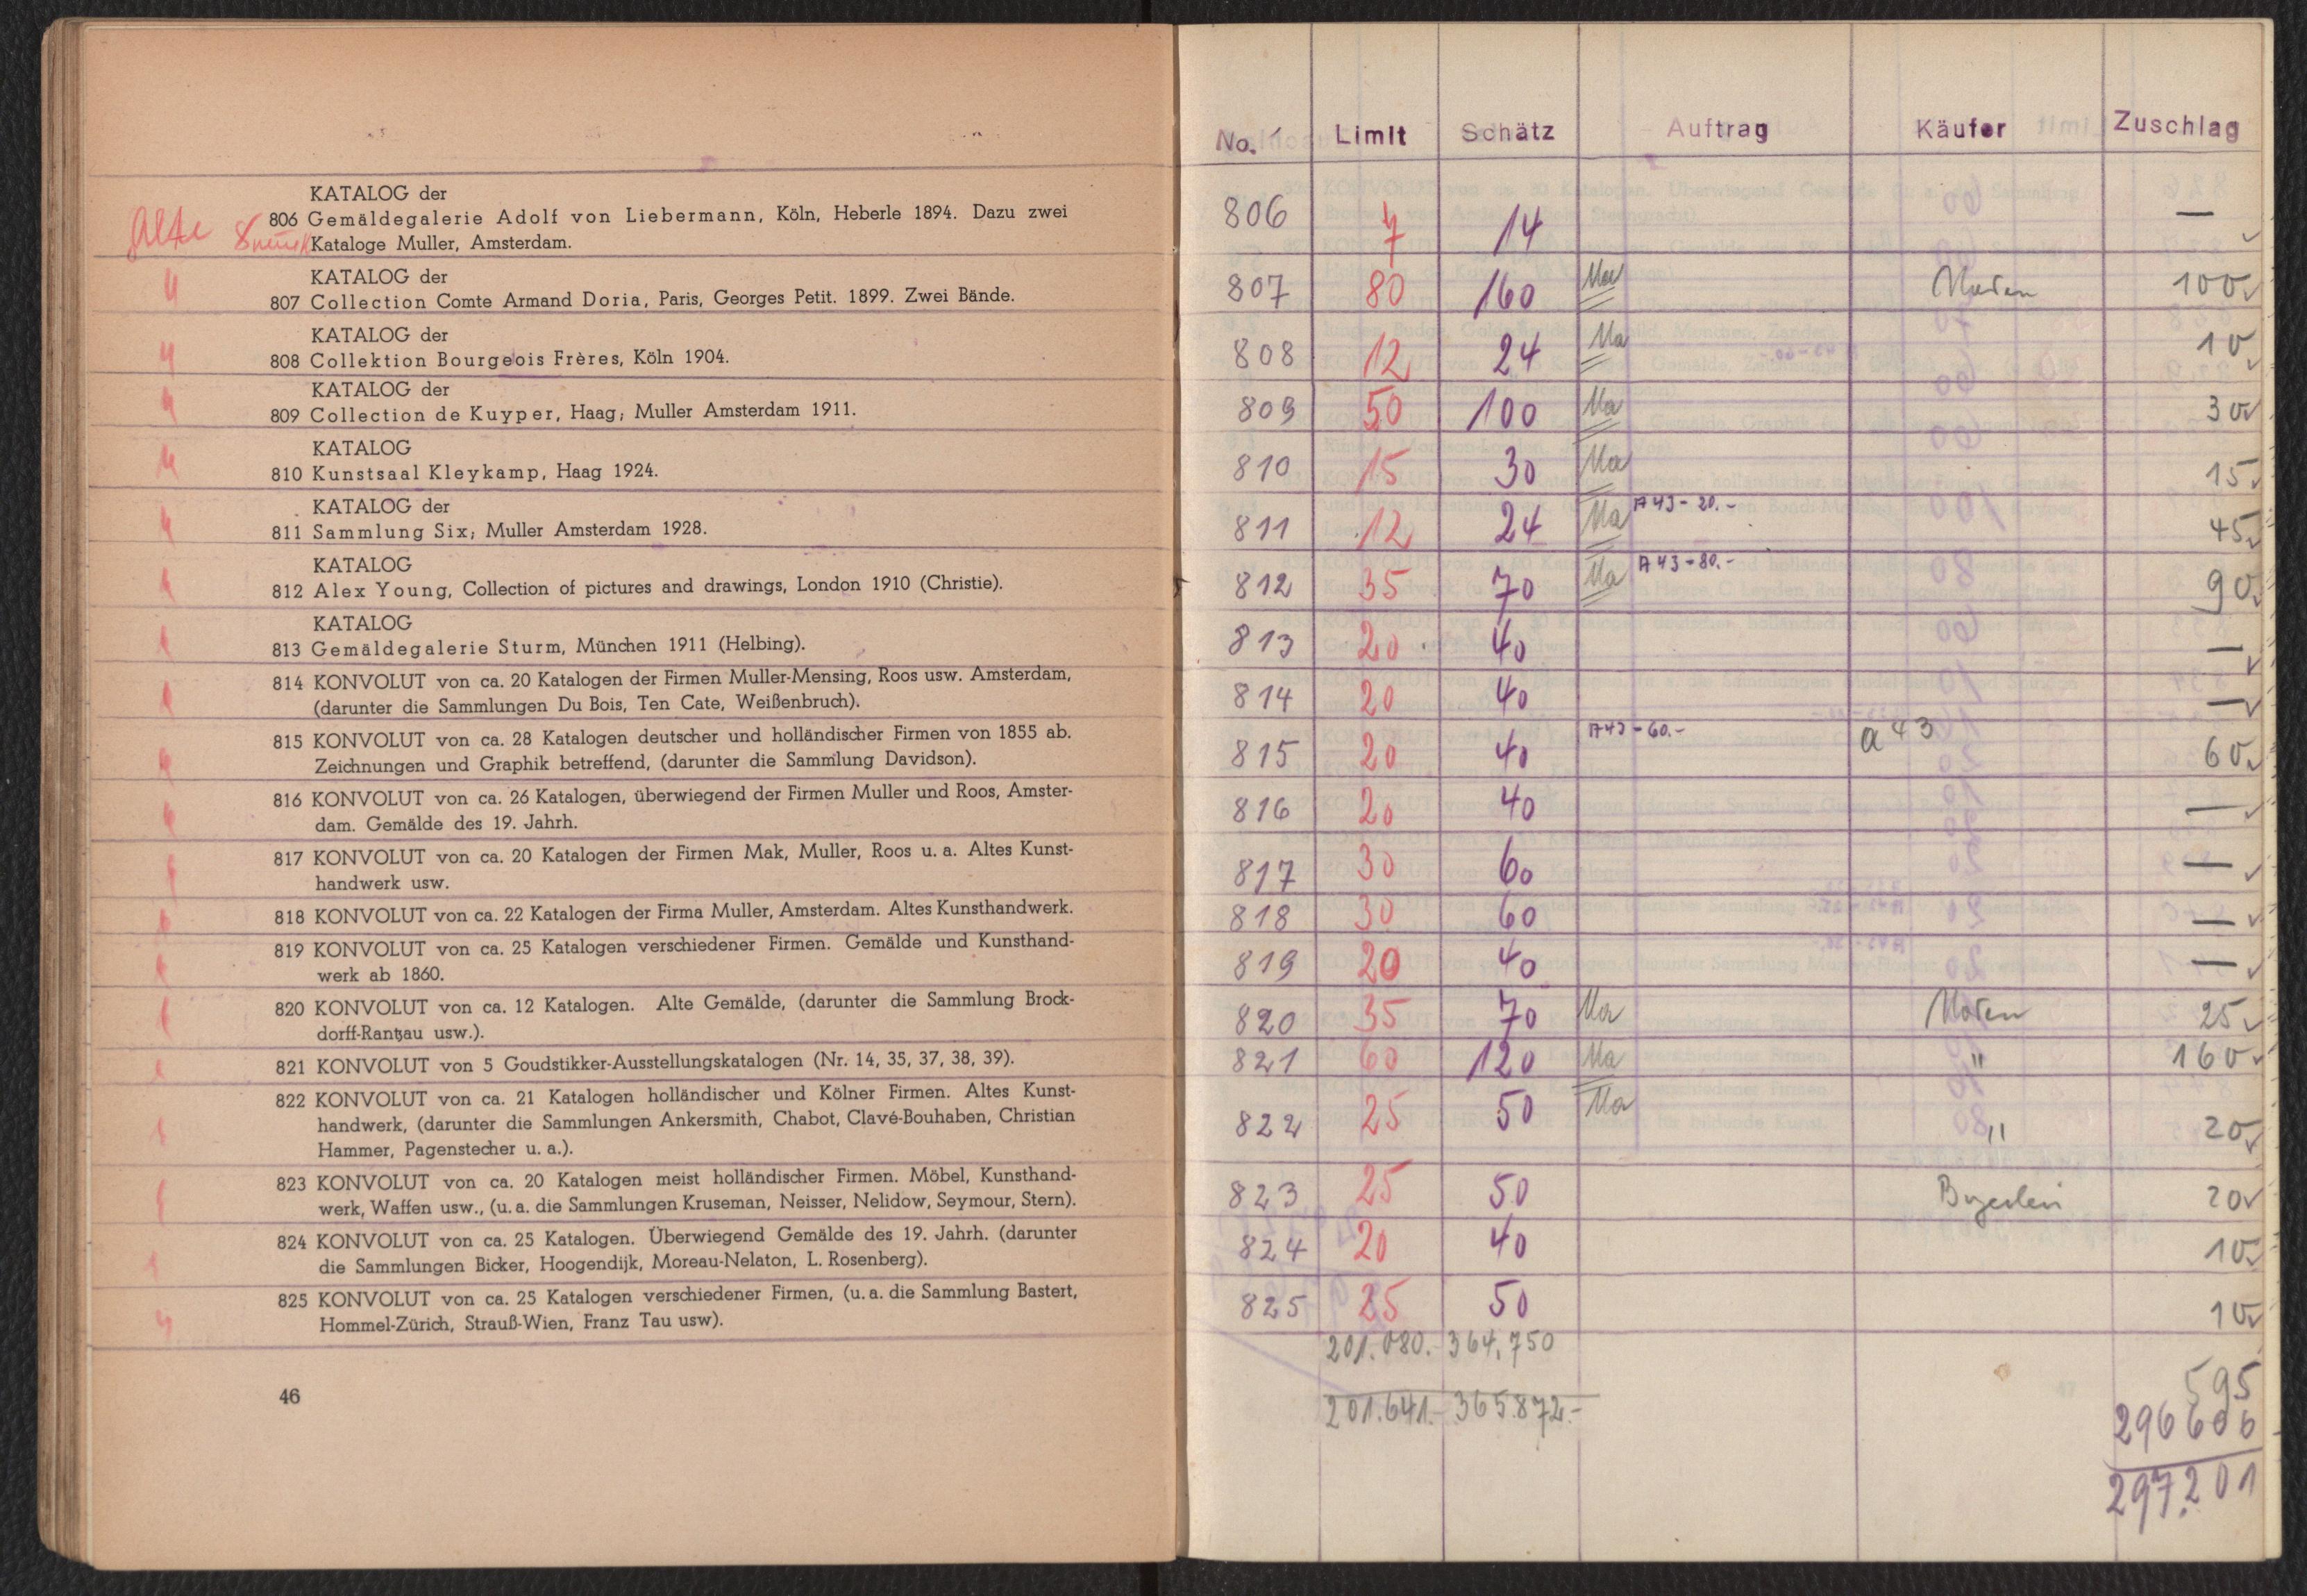 KATALOG der
806 Gemäldegalerie Adolf von Liebermann, Köln, Heberle 1894. Dazu zwei
Alte
Kataloge Muller, Amsterdam.
KATALOG der
807 Collection Comte Armand Doria, Paris, Georges Petit. 1899. Zwei Bände.
KATALOG der
808 Collektion Bourgeois Frères, Köln 1904.
KATALOG der
809 Collection de Kuyper, Haag; Muller Amsterdam 1911.
KATALOG
810 Kunstsaal Kleykamp, Haag 1924.
KATALOG der
811 Sammlung Six; Muller Amsterdam 1928.
KATALOG
812 Alex Young, Collection of pictures and drawings, London 1910 (Christie).
KATALOG
813 Gemäldegalerie Sturm, München 1911 (Helbing).
814 KONVOLUT von ca. 20 Katalogen der Firmen Muller-Mensing, Roos usw. Amsterdam,
(darunter die Sammlungen Du Bois, Ten Cate, Weißenbruch).
815 KONVOLUT von ca. 28 Katalogen deutscher und holländischer Firmen von 1855 ab.
Zeichnungen und Graphik betreffend, (darunter die Sammlung Davidson).
816 KONVOLUT von ca. 26 Katalogen, überwiegend der Firmen Muller und Roos, Amster-
dam. Gemälde des 19. Jahrh.
817 KONVOLUT von ca. 20 Katalogen der Firmen Mak, Muller, Roos u. a. Altes Kunst-
handwerk usw.
818 KONVOLUT von ca. 22 Katalogen der Firma Muller, Amsterdam. Altes Kunsthandwerk.
819 KONVOLUT von ca. 25 Katalogen verschiedener Firmen. Gemälde und Kunsthand-
werk ab 1860.
820 KONVOLUT von ca. 12 Katalogen. Alte Gemälde, (darunter die Sammlung Brock-
dorff-Rantzau usw.).
821 KONVOLUT von 5 Goudstikker-Ausstellungskatalogen (Nr. 14, 35, 37, 38, 39).
822 KONVOLUT von ca. 21 Katalogen holländischer und Kölner Firmen. Altes Kunst-
handwerk, (darunter die Sammlungen Ankersmith, Chabot, Clavé-Bouhaben, Christian
Hammer, Pagenstecher u. a.).
823 KONVOLUT von ca. 20 Katalogen meist holländischer Firmen. Möbel, Kunsthand-
werk, Waffen usw., (u. a. die Sammlungen Kruseman, Neisser, Nelidow, Seymour, Stern).
824 KONVOLUT von ca. 25 Katalogen. Überwiegend Gemälde des 19. Jahrh. (darunter
die Sammlungen Bicker, Hoogendijk, Moreau-Nelaton, L. Rosenberg).
825 KONVOLUT von ca. 25 Katalogen verschiedener Firmen, (u. a. die Sammlung Bastert,
Hommel-Zürich, Strauß-Wien, Franz Tau usw).
46
No. Limit Schätz Auftrag Käufer Zuschlag
806 7 14 —
807 80 160 Ma 100
808 12 24 Ma 10
809 50 100 Ma 30
810 15 30 Ma 15
811 12 24 Ma A43-20.- 45
812 35 70 Ma A43-80.- 90
813 20 40 —
814 20 40 —
815 20 40 A43-60.- a 43 60
816 20 40 —
817 30 60 —
818 30 60 —
819 20 40 —
820 35 70 Ma 25
821 60 120 Ma " 160
822 25 50 Ma " 20
823 25 50 20
824 20 40 10
825 25 50 10
201.080.- 364.750
201.641.- 365.872.-
595
296606
297.201